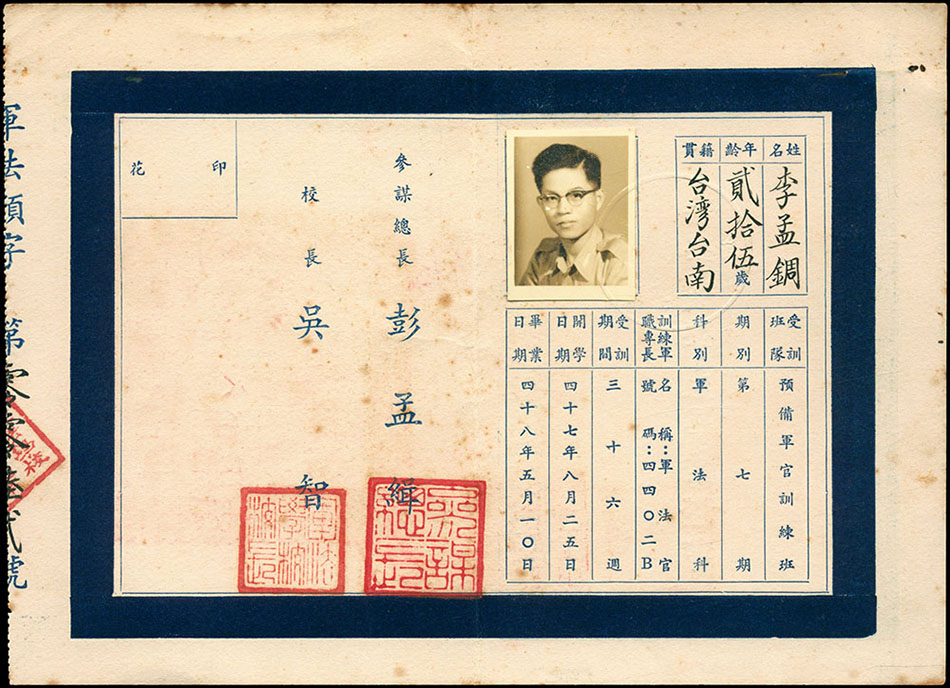 姓名
李孟鐗
年齡
貳拾伍歲
籍貫
台灣台南
受訓班隊
預備軍官訓練班
期別
第七期
科別
軍法科
訓練軍職專長
名稱：軍法官
號碼：四四〇二B
受訓期間
三十六週
開學日期
四十七年八月二五日
畢業日期
四十八年五月一〇日
參謀總長 彭孟緝
校長 吳智
印花
參謀總長
軍法學校校長
軍法預字 第零零陸貳號